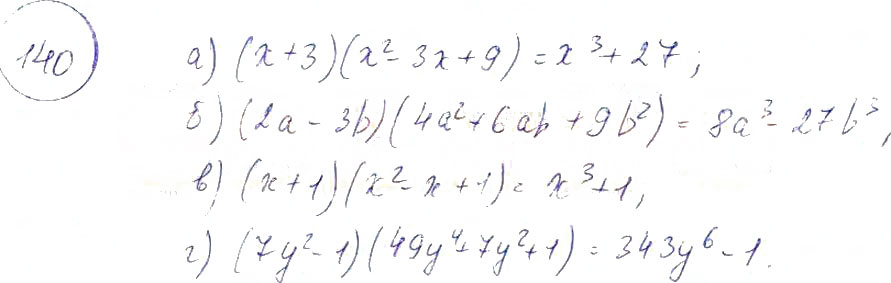 140
а) (x+3)(x²-3x+9)=x³+27;
б) (2a-3b)(4a²+6ab+9b²)=8a³-27b³,
в) (x+1)(x²-x+1)=x³+1,
г) (7y²-1)(49y⁴+7y²+1)=343y⁶-1.